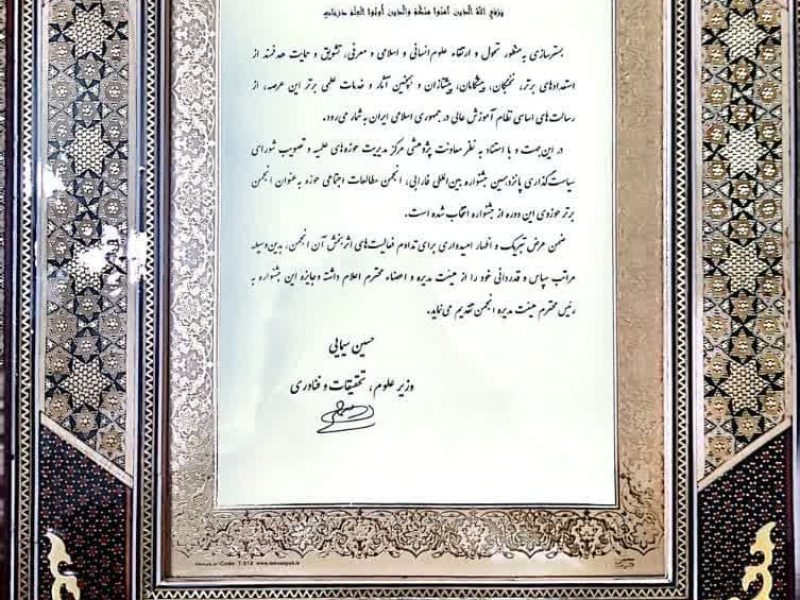 یرفع الله الذین آمنوا منکم والذین اوتوا العلم درجات
بسترسازی به‌منظور تحول و ارتقاء علوم انسانی و اسلامی و معرفی، تشویق و حمایت هدفمند از
استعدادهای برتر، نخبگان، پیشگامان، پیشتازان و همچنین آثار و خدمات علمی برتر این عرصه، از
رسالت‌های اساسی نظام آموزش عالی در جمهوری اسلامی ایران به شمار می‌رود.
در این جهت و با استناد به نظر معاونت پژوهشی مرکز مدیریت حوزه‌های علمیه و تصویب شورای
سیاست‌گذاری پانزدهمین جشنواره بین‌المللی فارابی، انجمن مطالعات اجتماعی حوزه به‌عنوان انجمن
برتر حوزوی این دوره از جشنواره انتخاب شده است.
ضمن عرض تبریک و اظهار امیدواری برای تداوم فعالیت‌های اثربخش آن انجمن، بدین‌وسیله
مراتب سپاس و قدردانی خود را از هیئت مدیره و اعضاء محترم اعلام داشته و جایزه این جشنواره به
رئیس محترم هیئت مدیره انجمن تقدیم می‌نماید.
حسین سیمایی
وزیر علوم، تحقیقات و فناوری